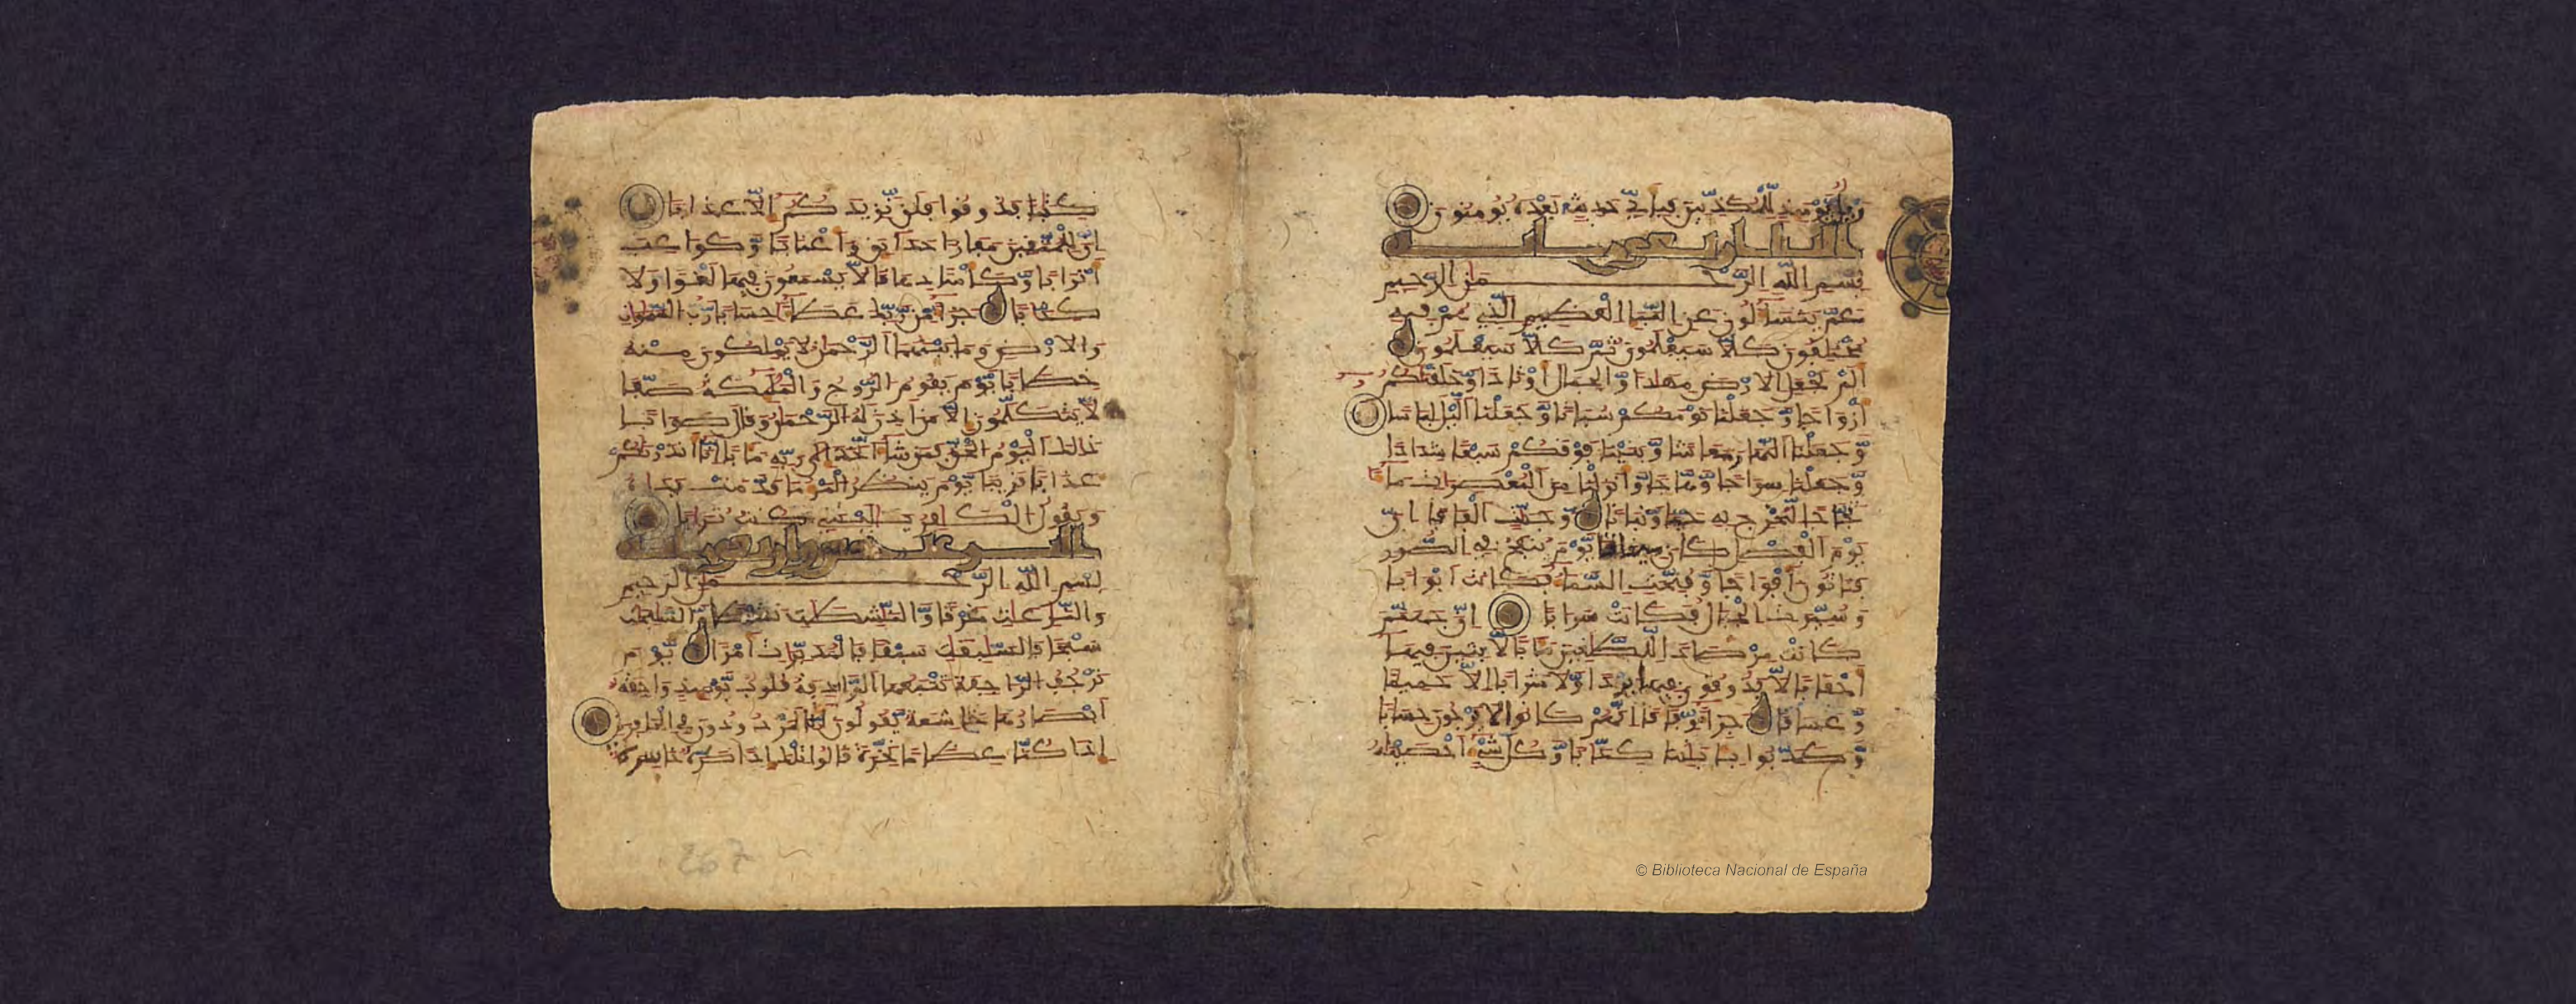 وَيْلٌ يَوْمَئِذٍ لِّلْمُكَذِّبِينَ فَبِأَيِّ حَدِيثٍ بَعْدَهُ يُومِنُونَ
النبإ أربعون آية
بِسْمِ اللَّهِ الرَّحْمَنِ الرَّحِيمِ
عَمَّ يَتَسَاءَلُونَ عَنِ النَّبَإِ الْعَظِيمِ الَّذِي هُمْ فِيهِ
مُخْتَلِفُونَ كَلَّا سَيَعْلَمُونَ ثُمَّ كَلَّا سَيَعْلَمُونَ
أَلَمْ نَجْعَلِ الْأَرْضَ مِهَادًا وَالْجِبَالَ أَوْتَادًا وَّخَلَقْنَاكُمْ
أَزْوَاجًا وَّجَعَلْنَا نَوْمَكُمْ سُبَاتًا وَّجَعَلْنَا اللَّيْلَ لِبَاسًا
وَّجَعَلْنَا النَّهَارَ مَعَاشًا وَّبَنَيْنَا فَوْقَكُمْ سَبْعًا شِدَادًا
وَّجَعَلْنَا سِرَاجًا وَّهَّاجًا وَّأَنزَلْنَا مِنَ الْمُعْصِرَاتِ مَاءً
ثَجَّاجًا لِّنُخْرِجَ بِهِ حَبًّا وَّنَبَاتًا وَّجَنَّاتٍ أَلْفَافًا إِنَّ
يَوْمَ الْفَصْلِ كَانَ مِيقَاتًا يَوْمَ يُنفَخُ فِي الصُّورِ
فَتَأْتُونَ أَفْوَاجًا وَّفُتِّحَتِ السَّمَاءُ فَكَانَتْ أَبْوَابًا
وَّسُيِّرَتِ الْجِبَالُ فَكَانَتْ سَرَابًا إِنَّ جَهَنَّمَ
كَانَتْ مِرْصَادًا لِّلطَّاغِينَ مَآبًا لَّابِثِينَ فِيهَا
أَحْقَابًا لَّا يَذُوقُونَ فِيهَا بَرْدًا وَّلَا شَرَابًا إِلَّا حَمِيمًا
وَّغَسَاقًا جَزَاءً وِّفَاقًا إِنَّهُمْ كَانُوا لَا يَرْجُونَ حِسَابًا
وَّكَذَّبُوا بِآيَاتِنَا كِذَّابًا وَّكُلَّ شَيْءٍ أَحْصَيْنَاهُ
كِتَابًا فَذُوقُوا فَلَن نَّزِيدَكُمْ إِلَّا عَذَابًا
إِنَّ لِلْمُتَّقِينَ مَفَازًا حَدَائِقَ وَأَعْنَابًا وَّكَوَاعِبَ
أَتْرَابًا وَّكَأْسًا دِهَاقًا لَّا يَسْمَعُونَ فِيهَا لَغْوًا وَلَا
كِذَّابًا جَزَاءً مِّن رَّبِّكَ عَطَاءً حِسَابًا رَّبُّ السَّمَاوَاتِ
وَالْأَرْضِ وَمَا بَيْنَهُمَا الرَّحْمَنُ لَا يَمْلِكُونَ مِنْهُ
خِطَابًا يَوْمَ يَقُومُ الرُّوحُ وَالْمَلَائِكَةُ صَفًّا
لَّا يَتَكَلَّمُونَ إِلَّا مَنْ أَذِنَ لَهُ الرَّحْمَنُ وَقَالَ صَوَابًا
ذَلِكَ الْيَوْمُ الْحَقُّ فَمَن شَاءَ اتَّخَذَ إِلَى رَبِّهِ مَآبًا إِنَّا أَنذَرْنَاكُمْ
عَذَابًا قَرِيبًا يَوْمَ يَنظُرُ الْمَرْءُ مَا قَدَّمَتْ يَدَاهُ
وَيَقُولُ الْكَافِرُ يَا لَيْتَنِي كُنتُ تُرَابًا
بِسْمِ اللَّهِ الرَّحْمَنِ الرَّحِيمِ
وَالنَّازِعَاتِ غَرْقًا وَّالنَّاشِطَاتِ نَشْطًا وَّالسَّابِحَاتِ
سَبْحًا فَالسَّابِقَاتِ سَبْقًا فَالْمُدَبِّرَاتِ أَمْرًا يَوْمَ
تَرْجُفُ الرَّاجِفَةُ تَتْبَعُهَا الرَّادِفَةُ قُلُوبٌ يَوْمَئِذٍ وَاجِفَةٌ
أَبْصَارُهَا خَاشِعَةٌ يَقُولُونَ أَئِنَّا لَمَرْدُودُونَ فِي الْحَافِرَةِ
إِذَا كُنَّا عِظَامًا نَّخِرَةً قَالُوا تِلْكَ إِذًا كَرَّةٌ خَاسِرَةٌ
© Biblioteca Nacional de España